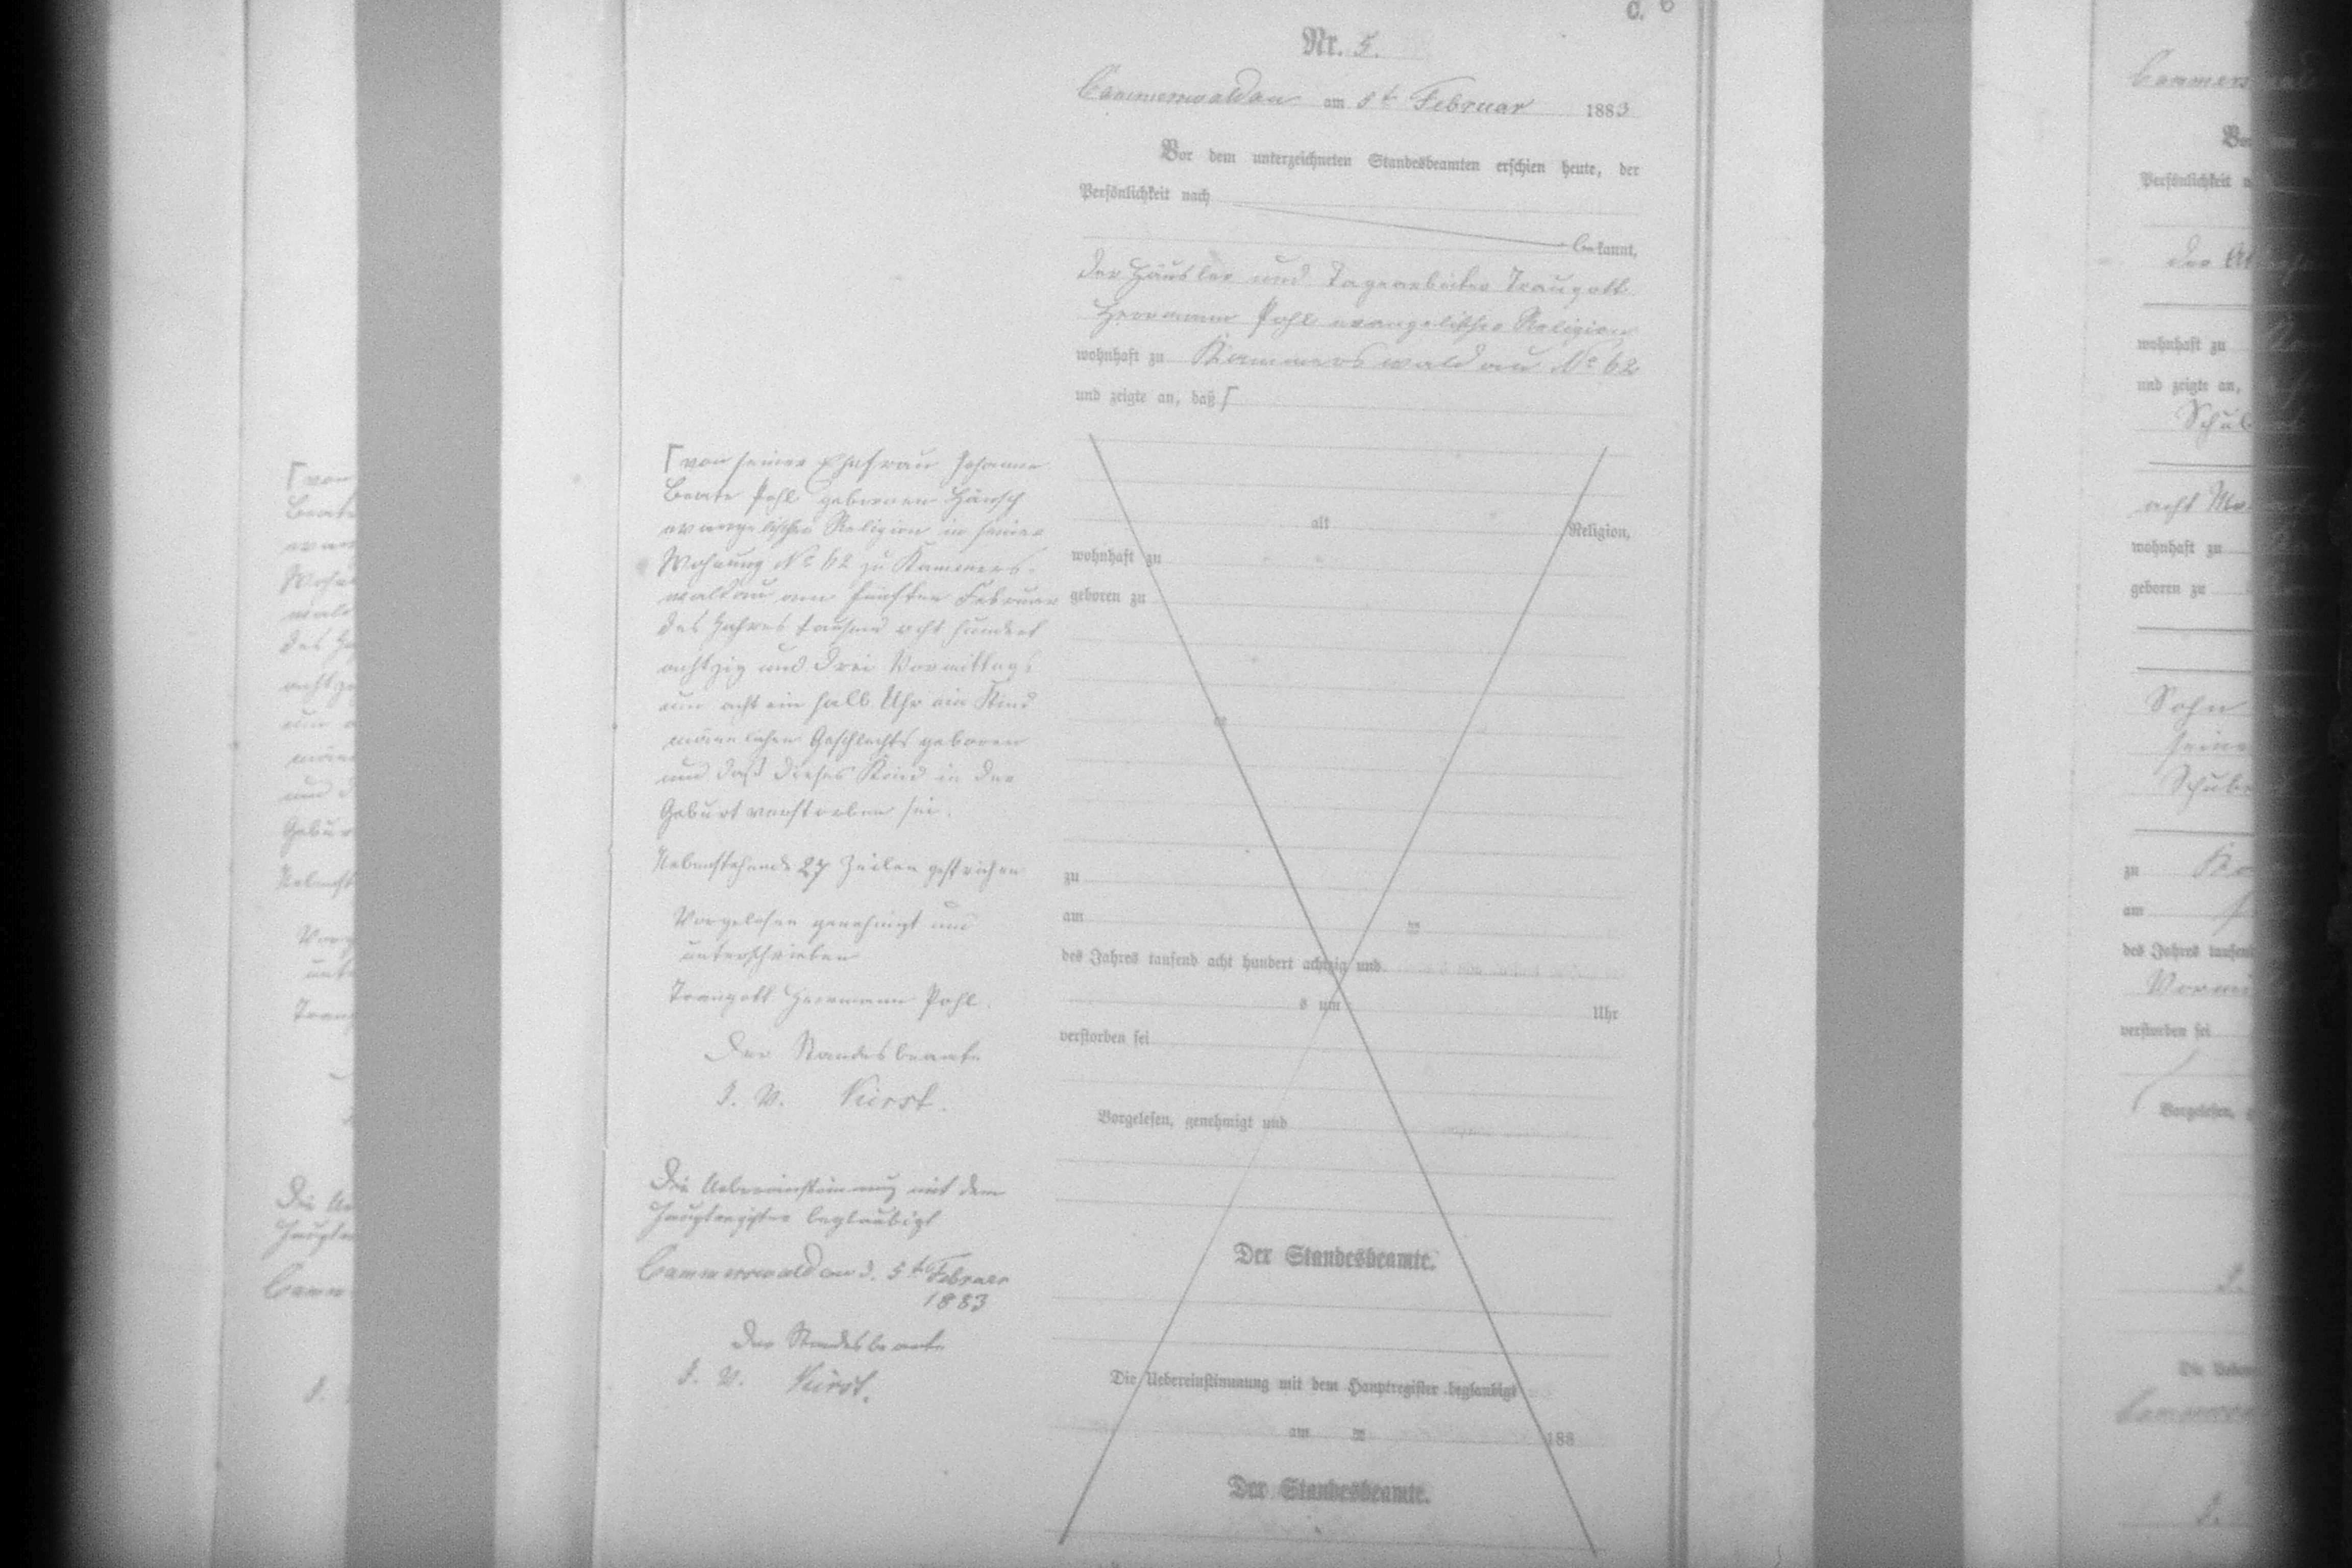 C. 6
Nr. 5.
Cammerswaldau am 5t Februar 1883
Vor dem unterzeichneten Standesbeamten erschien heute, der
Persönlichkeit nach
bekannt,
der Häusler und Tagearbeiter Traugott
Herrmann Pohl evangelischer Religion
wohnhaft zu Kammerswaldau No 62
und zeigte an, daß ┌
┌ von seiner Ehefrau Johanne
Beate Pohl geborenen Hänsch
evangelischer Religion in seiner
Wohnung No 62 zu Kammers-
waldau am fünften Februar
des Jahres tausend acht hundert
achtzig und drei Vormittags
um acht ein halb Uhr ein Kind
männlichen Geschlechts geboren
und daß dieses Kind in der
Geburt verstorben sei.
Nebenstehende 27 Zeilen gestrichen
Vorgelesen genehmigt und
unterschrieben
Traugott Herrmann Pohl.
Der Standesbeamte
I. V. Kürst.
Die Uebereinstimmung mit dem
Hauptregister beglaubigt
Cammerswaldau d. 5t Februar
1883
Der Standesbeamte
I. V. Kürst.
alt Religion,
wohnhaft zu
geboren zu
zu
am
des Jahres tausend acht hundert achtzig und
s um Uhr
verstorben sei
Vorgelesen, genehmigt und
Der Standesbeamte.
Die Uebereinstimmung mit dem Hauptregister beglaubigt
am 188
Der Standesbeamte.
Persönlichkeit
wohnhaft zu
und zeigte an,
acht
wohnhaft zu
geboren zu
Sohn
seiner
zu
am
des Jahres
verstorben sei
Vorgelesen,